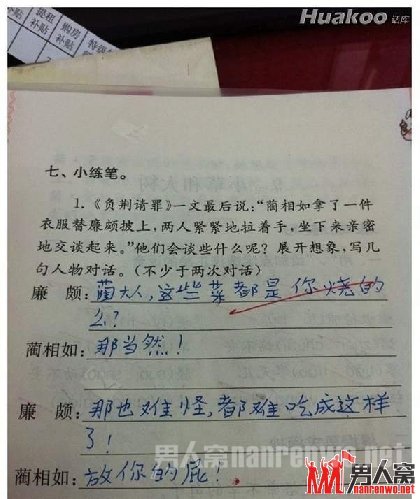 Huakoo 话库
房租补贴
购房补贴
特级
七、小练笔。
1.《负荆请罪》一文最后说:“蔺相如拿了一件
衣服替廉颇披上,两人紧紧地拉着手,坐下来亲密
地交谈起来。”他们会谈些什么呢?展开想象,写几
句人物对话。(不少于两次对话)
廉 颇:蔺大人,这些菜都是你烧的
么?
蔺相如:那当然!
廉 颇:那也难怪,都难吃成这样
了!
蔺相如:放你的屁!
男人窝nanrenwo.net
男人窝
http://nanrenwo.net